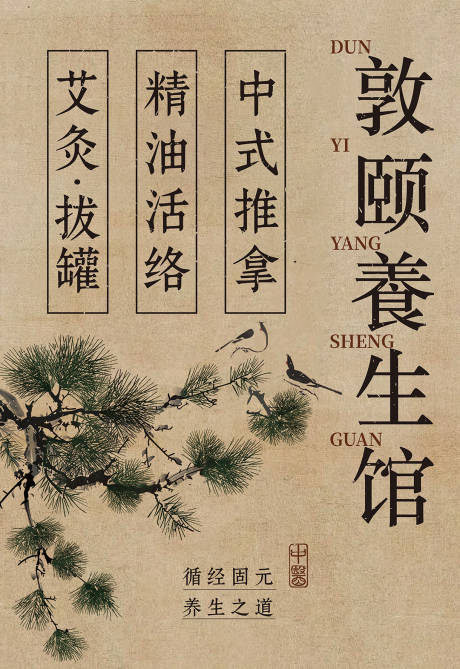 DUN
敦
YI
颐
YANG
養
SHENG
生
GUAN
馆
中式推拿
精油活络
艾灸·拔罐
循经固元
养生之道
中醫